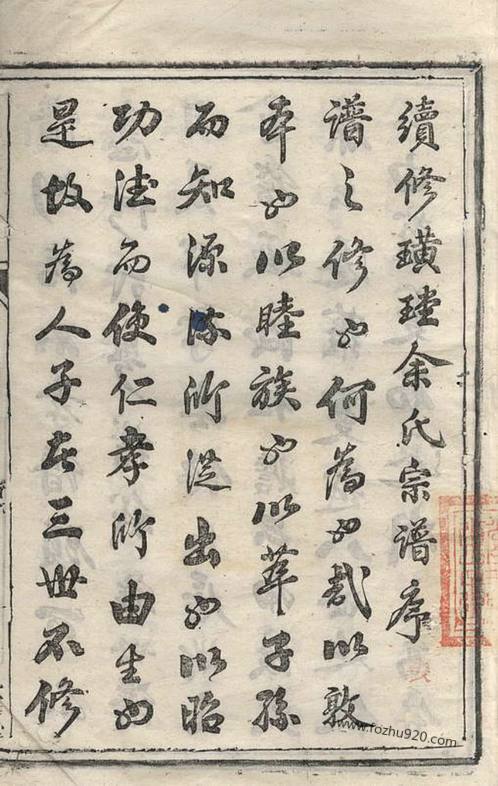 續修璜瑆余氏宗譜序
譜之修也何為也哉以敦
本也以睦族也以萃子孫
而知源流所從出也以昭
功德而使仁孝所由生也
是故為人子者三世不修
www.fozhu920.com